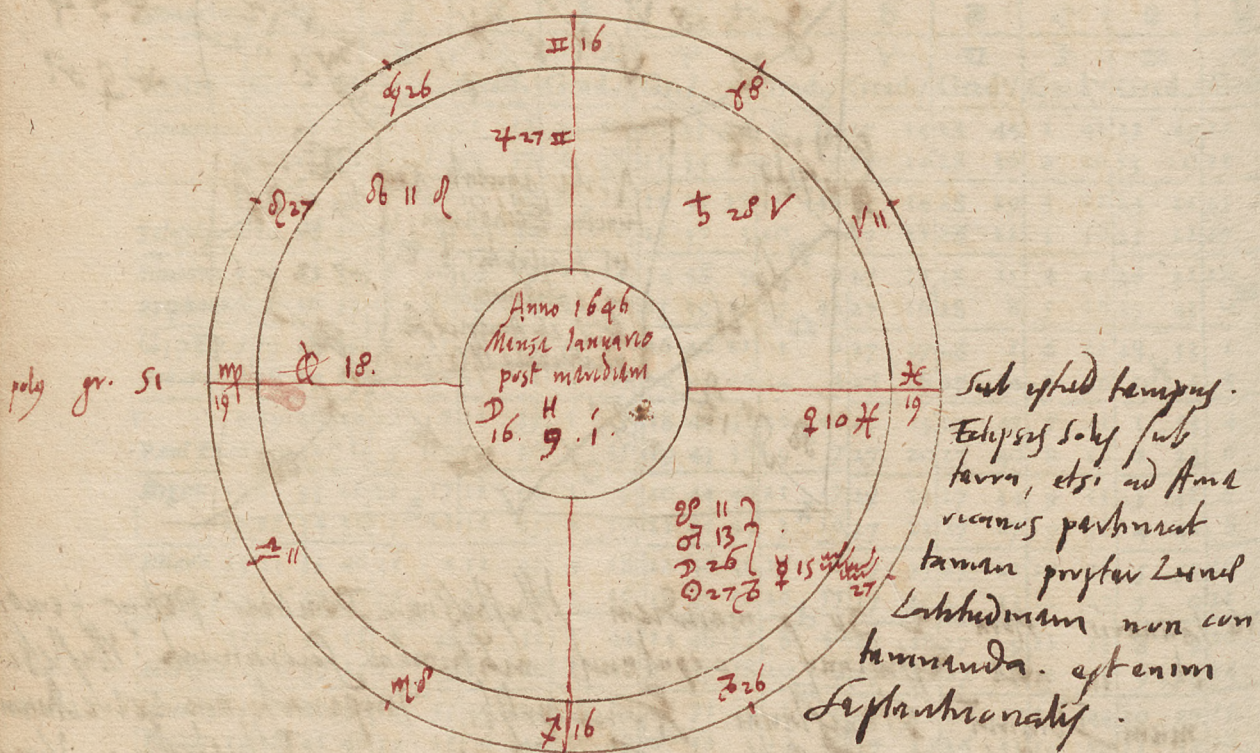 ♊ 16
♋ 26
♉ 8
♃ 27 ♊
♌ 27
☊ 11 ♌
♄ 28 ♈
♈ 11
Anno 1646
Mense Ianuario
post meridiem
D H
16. 9. 1.
poly gr. 51
♍
19
⊕ 18.
♓
19
♀ 10 ♓
☋ 11
♂ 13
☽ 26
☉ 27 ♑
☿ 15 ♒
♒
27
♎ 11
♏ 8
♐ 16
♑ 26
Sub istud tempus.
Eclipsis Solis sub
terra, etsi ad Ame
ricanos pertineat
tamen propter Lunae
Latitudinem non con
temnenda. est enim
Septentrionalis.